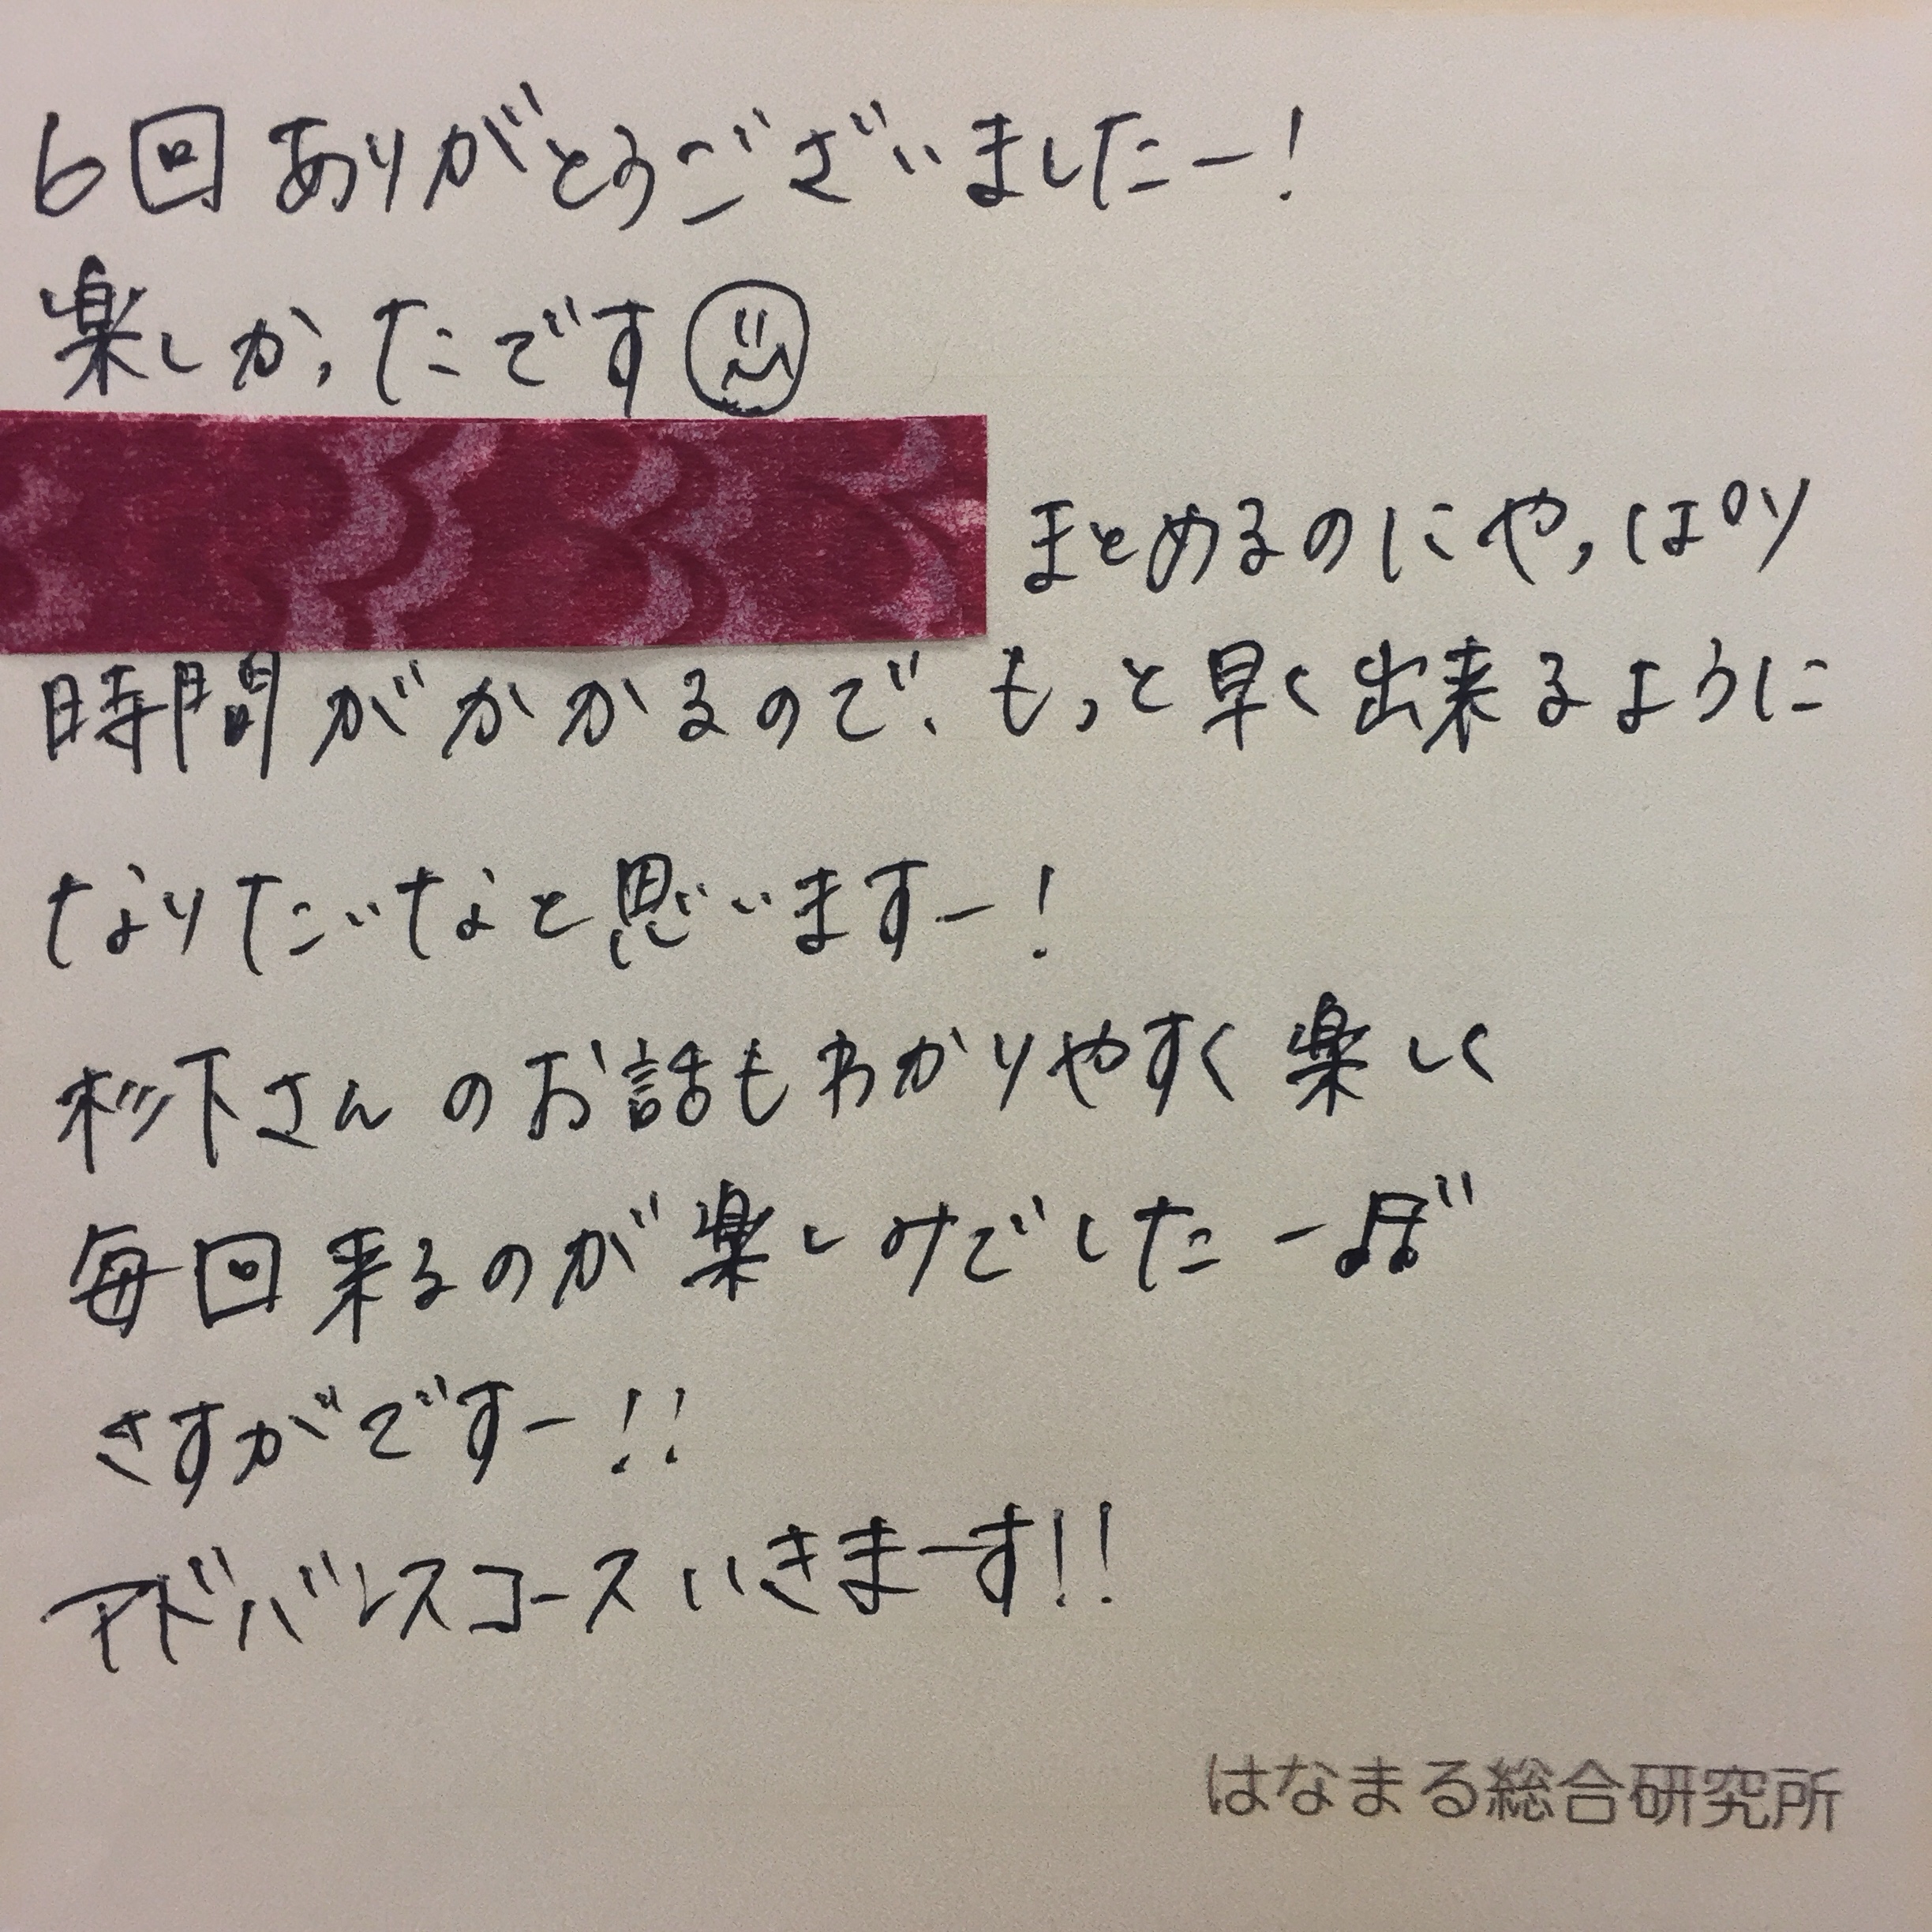 6回ありがとうございましたー!
楽しかったです
まとめるのにやっぱり
時間がかかるので、もっと早く出来るように
なりたいなと思いますー!
杉下さんのお話もわかりやすく楽しく
毎回来るのが楽しみでしたー♬
さすがですー!!
アドバンスコースいきまーす!!
はなまる総合研究所